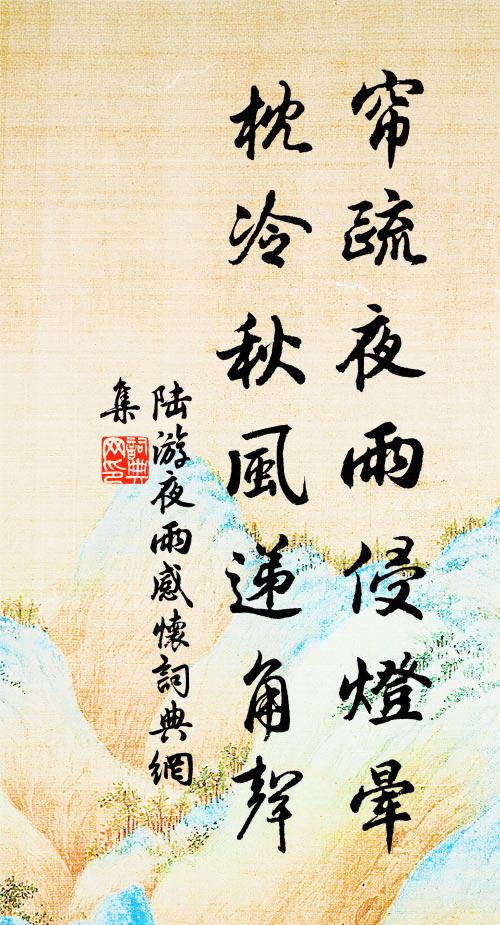 帘疏夜雨侵燈暈
枕冷秋風递角聲
陆游夜雨感懷詞典網
集
詞典网印